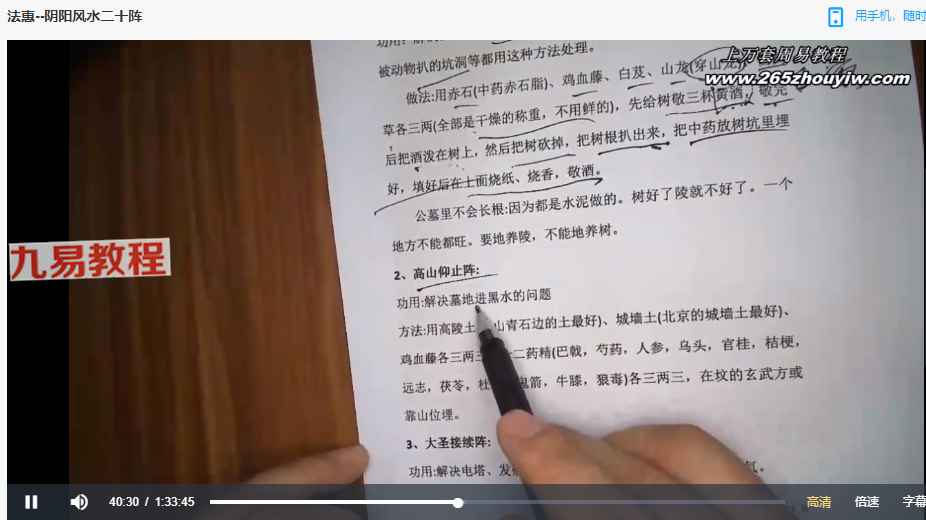 法惠--阴阳风水二十阵
用手机，随时
上万套周易教程
www.265zhouyiw.com
九易教程
功用：解决
被动物扒的坑洞等都用这种方法处理。
做法:用赤石(中药赤石脂)、鸡血藤、白芨、山龙(穿山龙)
草各三两(全部是干燥的称重，不用鲜的)，先给树敬三杯黄酒，敬完
后把酒泼在树上，然后把树砍掉，把树根扒出来，把中药放树坑里埋
好，填好后在上面烧纸、烧香，敬酒。
公墓里不会长根:因为都是水泥做的。树好了陵就不好了。一个
地方不能都旺。要地养陵，不能地养树。
2、高山仰止阵:
功用:解决墓地进黑水的问题
方法:用高陵土 山青石边的土最好)、城墙土(北京的城墙土最好)、
鸡血藤各三两三 二药精(巴戟，芍药，人参，乌头，官桂，桔梗，
远志，茯苓，杜 鬼箭，牛膝，狼毒)各三两三，在坟的玄武方或
靠山位埋。
3、大圣接续阵:
功用:解决电塔、发 气。
40:30 / 1:33:45
高清
倍速
字幕